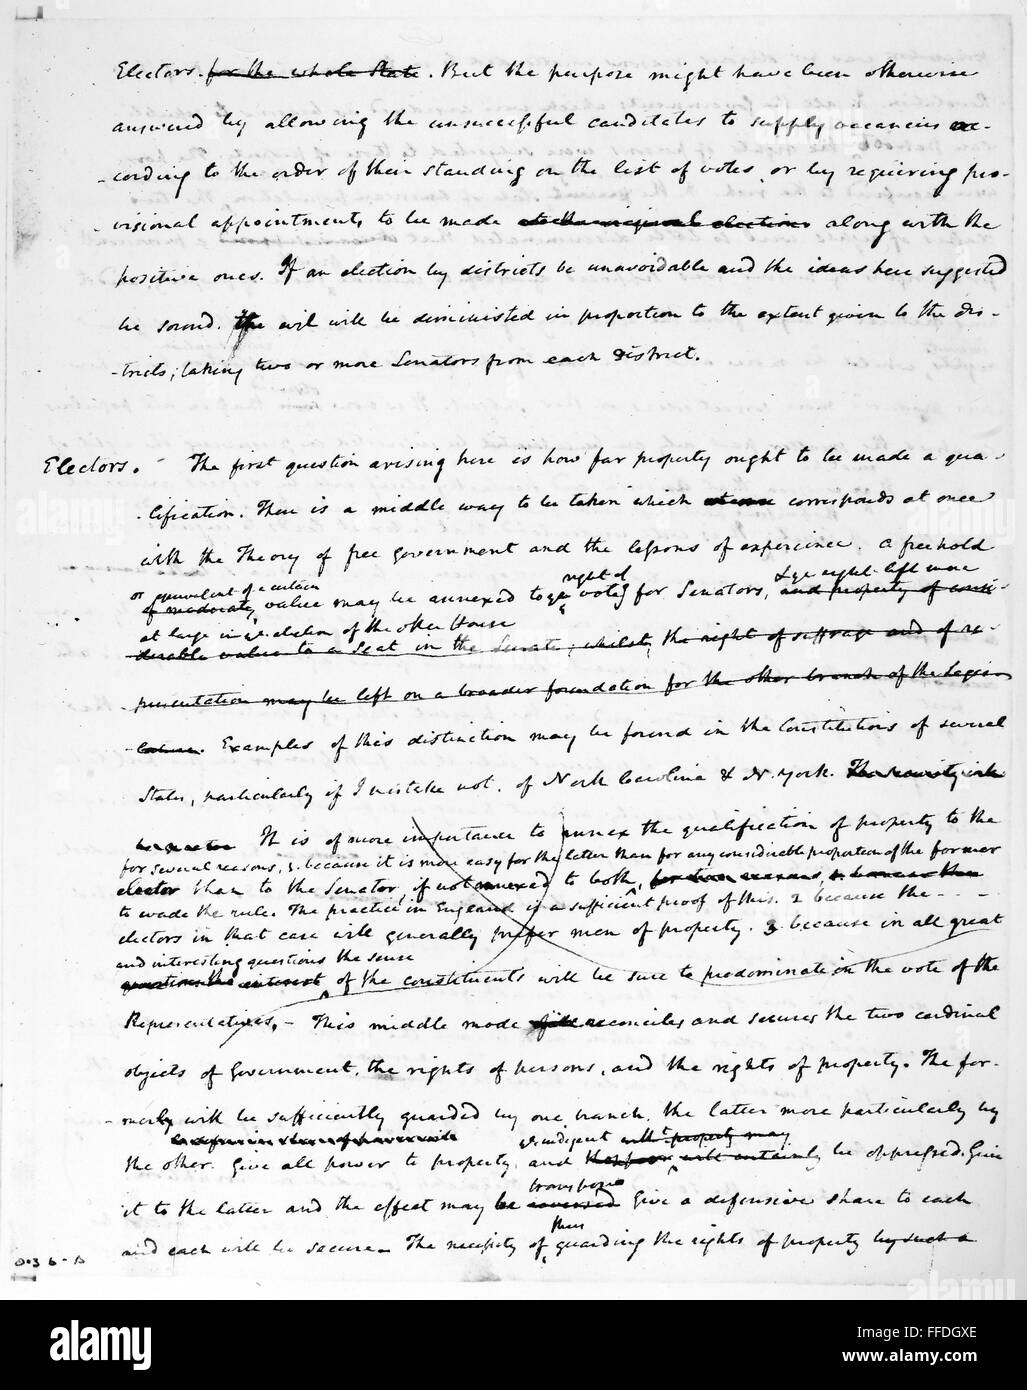 Electors. for the whole State. But the purpose might have been otherwise
answered by allowing the unsuccessful candidates to supply vacancies ac-
-cording to the order of their standing on the list of votes, or by requiring pro-
-visional appointments to be made along with the
positive ones. If an election by districts be unavoidable and the ideas here suggested
be sound, the evil will be diminished in proportion to the extent given to the dis-
-tricts, taking two or more Senators from each district.
Electors. The first question arising here is how far property ought to be made a qua-
-lification. There is a middle way to be taken which corresponds at once
with the Theory of free Government and the lessons of experience. a freehold
or equivalent of a certain right of & ye right left more
of moderate value may be annexed to ye voting for Senators, and property of consi-
at large in ye election of the other House
derable value to a Seat in the Senate; whilst the right of suffrage and of re-
presentation may be left on a broader foundation for the other branch of the Legis-
-lature. Examples of this distinction may be found in the Constitutions of several
States, particularly if I mistake not, of North Carolina & N. York.
It is of more importance to annex the qualification of property to the
for several reasons, 1. because it is more easy for the latter than for any considerable proportion of the former
elector than to the Senator, if not annexed to both,
to evade the rule. The practice in England is a sufficient proof of this. 2 because the
electors in that case will generally prefer men of property. 3 because in all great
and interesting questions the sense
questions the interest of the constituents will be sure to predominate in the vote of the
Representatives. - This middle mode reconciles and secures the two cardinal
objects of Government, the rights of persons, and the rights of property. The for-
-mer will be sufficiently guarded by one branch, the latter more particularly by
ye indigent without property may
the other. Give all power to property, and the poor will certainly be oppressed. Give
transposed
it to the latter and the effect may be reversed Give a defensive share to each
thus
and each will be secure. The necessity of guarding the rights of property by such a
alamy
Image ID: FFDGXE
www.alamy.com